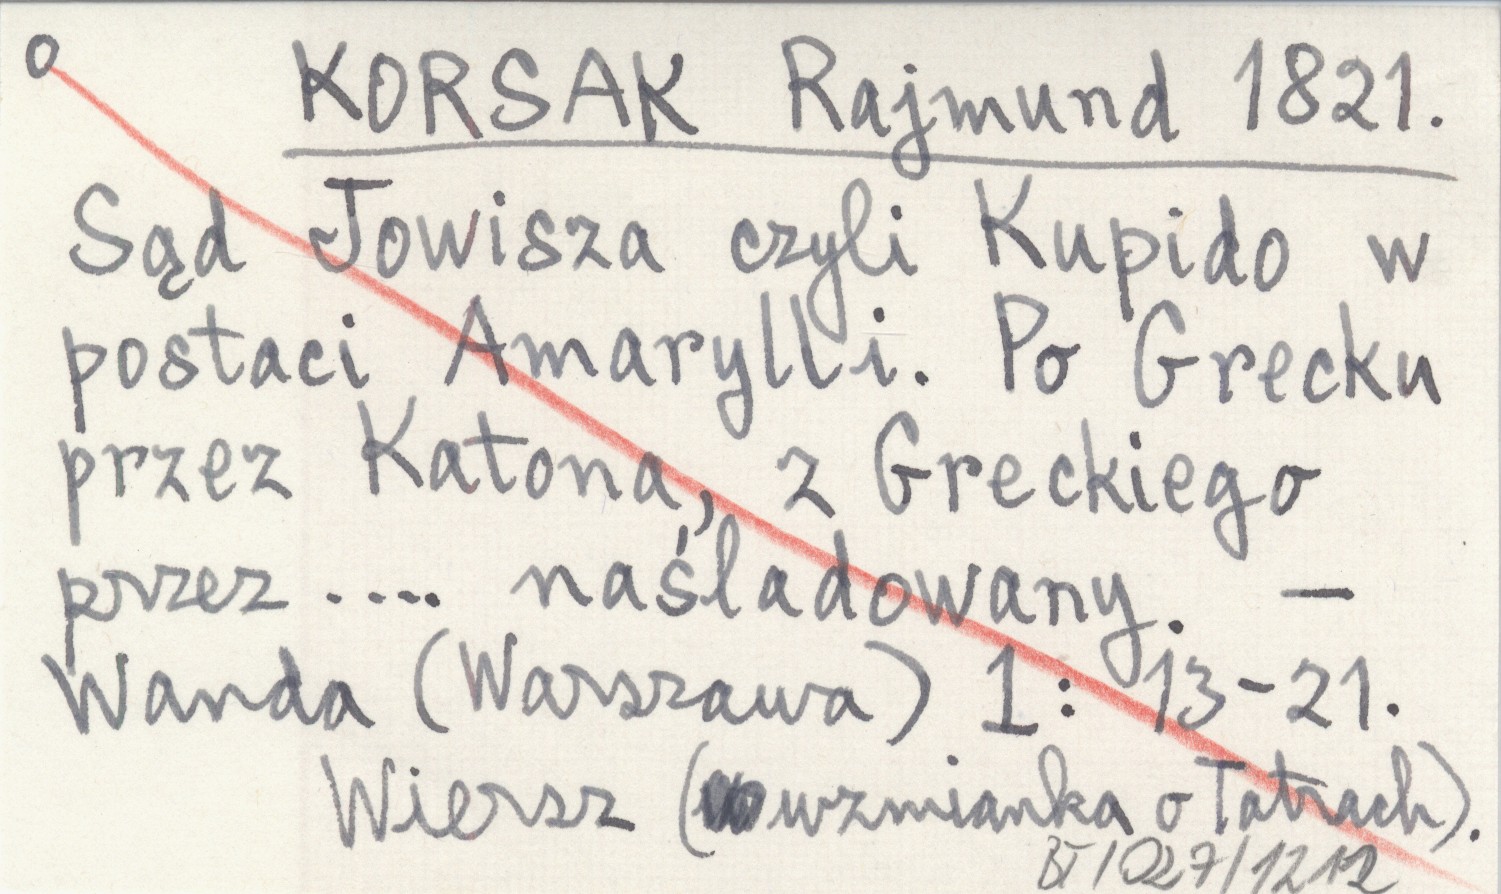 o KORSAK Rajmund 1821.
Sąd Jowisza czyli Kupido w
postaci Amarylli. Po Grecku
przez Katona, z Greckiego
przez .... naśladowany. —
Wanda (Warszawa) 1: 13-21.
Wiersz (wzmianka o Tatrach).
BT/027/1212